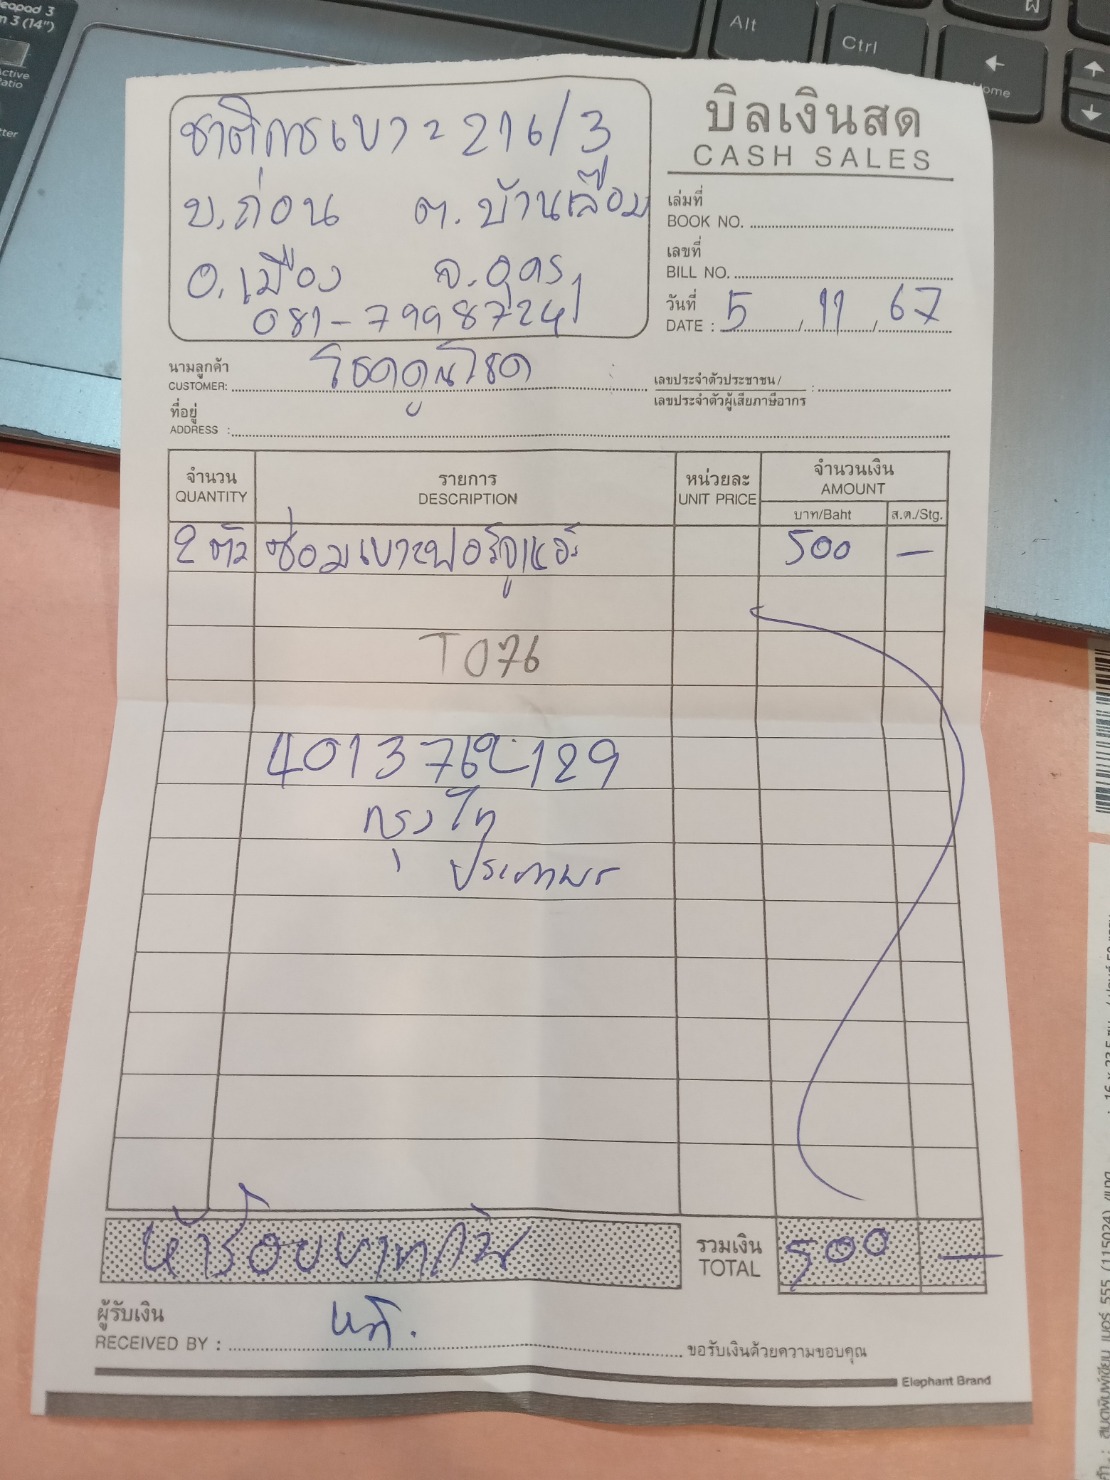 บิลเงินสด
CASH SALES
ชาติการเบาะ 216/3
บ.ถ่อน ต.บ้านเลื่อม
อ.เมือง จ.อุดร
081-7998724
เล่มที่
BOOK NO.
เลขที่
BILL NO.
วันที่
DATE : 5 / 11 / 67
นามลูกค้า
CUSTOMER: โชคคูณโชค
เลขประจำตัวประชาชน /
เลขประจำตัวผู้เสียภาษีอากร :
ที่อยู่
ADDRESS :
จำนวน รายการ หน่วยละ จำนวนเงิน
QUANTITY DESCRIPTION UNIT PRICE AMOUNT
บาท/Baht ส.ต./Stg.
2 ตัว ซ่อมเบาะฟอร์จูนเนอร์ 500 —
T076
4013762129
กรุงไท
ห้าร้อยบาทถ้วน
รวมเงิน
TOTAL 500 —
ผู้รับเงิน
RECEIVED BY :
ขอรับเงินด้วยความขอบคุณ
Elephant Brand
Alt
Ctrl
Home